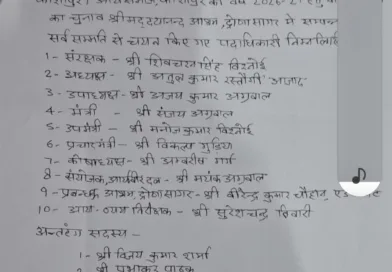 का चुनाव श्रीमद् दयानन्द आश्रम, द्रोणसागर में सम्पन्न
सर्व सम्मति से चयन किए गए पदाधिकारी निम्नलिखि
1- संरक्षक - श्री शिवचरन सिंह विश्नोई
2- अध्यक्ष - श्री अतुल कुमार रस्तौगी 'आजाद'
3- उपाध्यक्ष - श्री अजय कुमार अग्रवाल
4- मंत्री - श्री संजय अग्रवाल
5- उपमंत्री - श्री मनोज कुमार विश्नोई
6- प्रचारमंत्री - श्री विकल्प गुड़िया
7- कोषाध्यक्ष - श्री अम्बरीष गर्ग
8- संयोजक, आर्यवीर दल - श्री मयंक अग्रवाल
9- प्रबन्धक आश्रम, द्रोणसागर - श्री वीरेन्द्र कुमार चौहान, एड
10- आय-व्यय निरीक्षक - श्री सुरेशचन्द्र तिवारी
अन्तरंग सदस्य -
1- श्री विजय कुमार शर्मा
2 श्री प्रभाकर पाठक